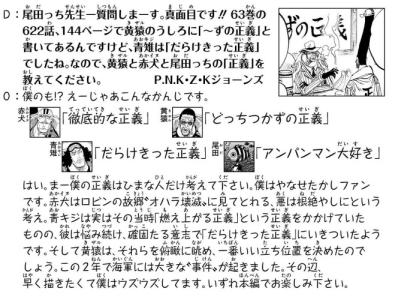 D：尾田っち先生一質問しまーす。真面目です!! 63巻の
622話、144ページで黄猿のうしろに「〜ずの正義」と
書いてあるんですけど、青雉は「だらけきった正義」
でしたね。なので、黄猿と赤犬と尾田っちの「正義」を
教えてください。 P.N.K・Z・Kジョーンズ
ずの正義
O：僕のも!? えーじゃあこんなかんじです。
赤犬「徹底的な正義」 黄猿「どっちつかずの正義」
青雉「だらけきった正義」 尾田「アンパンマン大好き」
はい。まー僕の正義はひまな人だけ考えて下さい。僕はやなせたかしファン
です。赤犬はロビンの故郷"オハラ壊滅"に見てとれる、悪は根絶やしにという
考え。青キジは実はその当時「燃え上がる正義」という正義をかかげていた
ものの、彼は悩み続け、確固たる意志で「だらけた正義」にいきついたよう
です。そして黄ザルは、それらを俯瞰に眺め、一番いい立ち位置を決めたので
しょう。この2年で海軍には大きな"事件"が起きました。その辺、
早く描きたくて僕はウズウズしてます。いずれ本編でお楽しみ下さい。